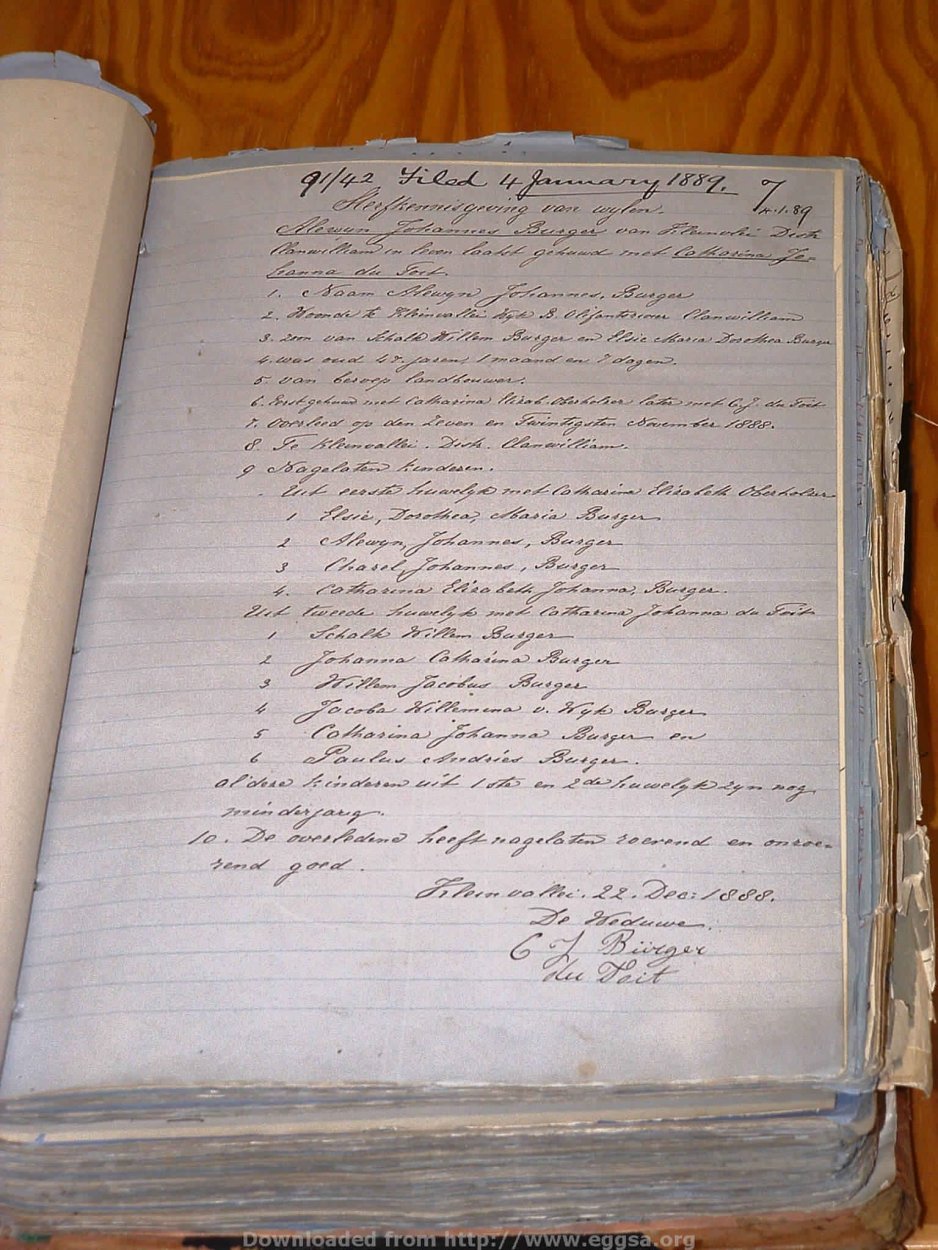 91/42 Filed 4 January 1889. 7
4.1.89
Sterfkennisgeving van wylen.
Alewyn Johannes Burger van Kleinvlei Distr
Clanwilliam in leven laatst gehuwd met Catharina Jo-
hanna du Toit.
1. Naam Alewyn Johannes, Burger
2. Woonde te Kleinvallei Wyk B. Olifantsrivier Clanwilliam
3. zoon van Schalk Willem Burger en Elsie Maria Dorothea Burger
4. was oud 47 jaren, 1 maand en 7 dagen.
5. van beroep landbouwer.
6. Eerst gehuwd met Catharina Elizab. Oberholzer later met C. J. du Toit
7. Overleed op den Zeven en Twintigsten November 1888.
8. Te Kleinvallei. Distr. Clanwilliam.
9 Nagelaten kinderen.
Uit eerste huwelyk met Catharina Elizabeth Oberholzer
1 Elsie, Dorothea, Maria Burger
2 Alewyn, Johannes, Burger
3 Charel, Johannes, Burger
4. Catharina Elizabeth Johanna, Burger.
Uit tweede huwelyk met Catharina Johanna du Toit
1 Schalk Willem Burger
2 Johanna Catharina Burger
3 Willem Jacobus Burger
4 Jacoba Willemina v. Wyk Burger
5 Catharina Johanna Burger en
6 Paulus Andries Burger.
al deze kinderen uit 1ste en 2de huwelyk zyn nog
minderjarig.
10. De overledene heeft nagelaten roerend en onroe-
rend goed.
Kleinvallei. 22. Dec: 1888.
De Weduwe.
C J Bürger
du Toit
Downloaded from http://www.eggsa.org